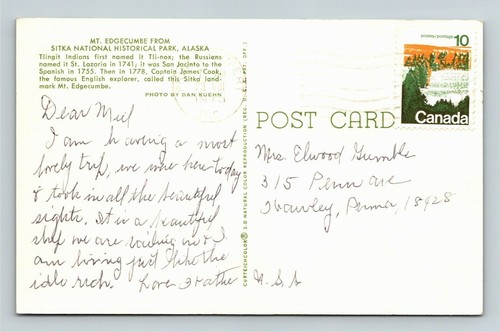 MT. EDGECUMBE FROM
SITKA NATIONAL HISTORICAL PARK, ALASKA
Tlingit Indians first named it Tli-nos; the Russians
named it St. Lazaria in 1741; it was San Jacinto to the
Spanish in 1755. Then in 1778, Captain James Cook,
the famous English explorer, called this Sitka land-
mark Mt. Edgecumbe.
PHOTO BY DAN KUEHN
Dear
I am having a most
lovely trip, we were here today
& took in all the beautiful
sights. It is a beautiful
ship we are sailing on & I
am living just like the
idle rich. Love
CURTEICHCOLOR® 3-D NATURAL COLOR REPRODUCTION (REG. U.S.A. PAT. OFF.)
POST CARD
postes/postage 10
Canada
Mrs. Elwood Gumble
315 Penn ave
Hawley, Penna, 18428
U.S.A